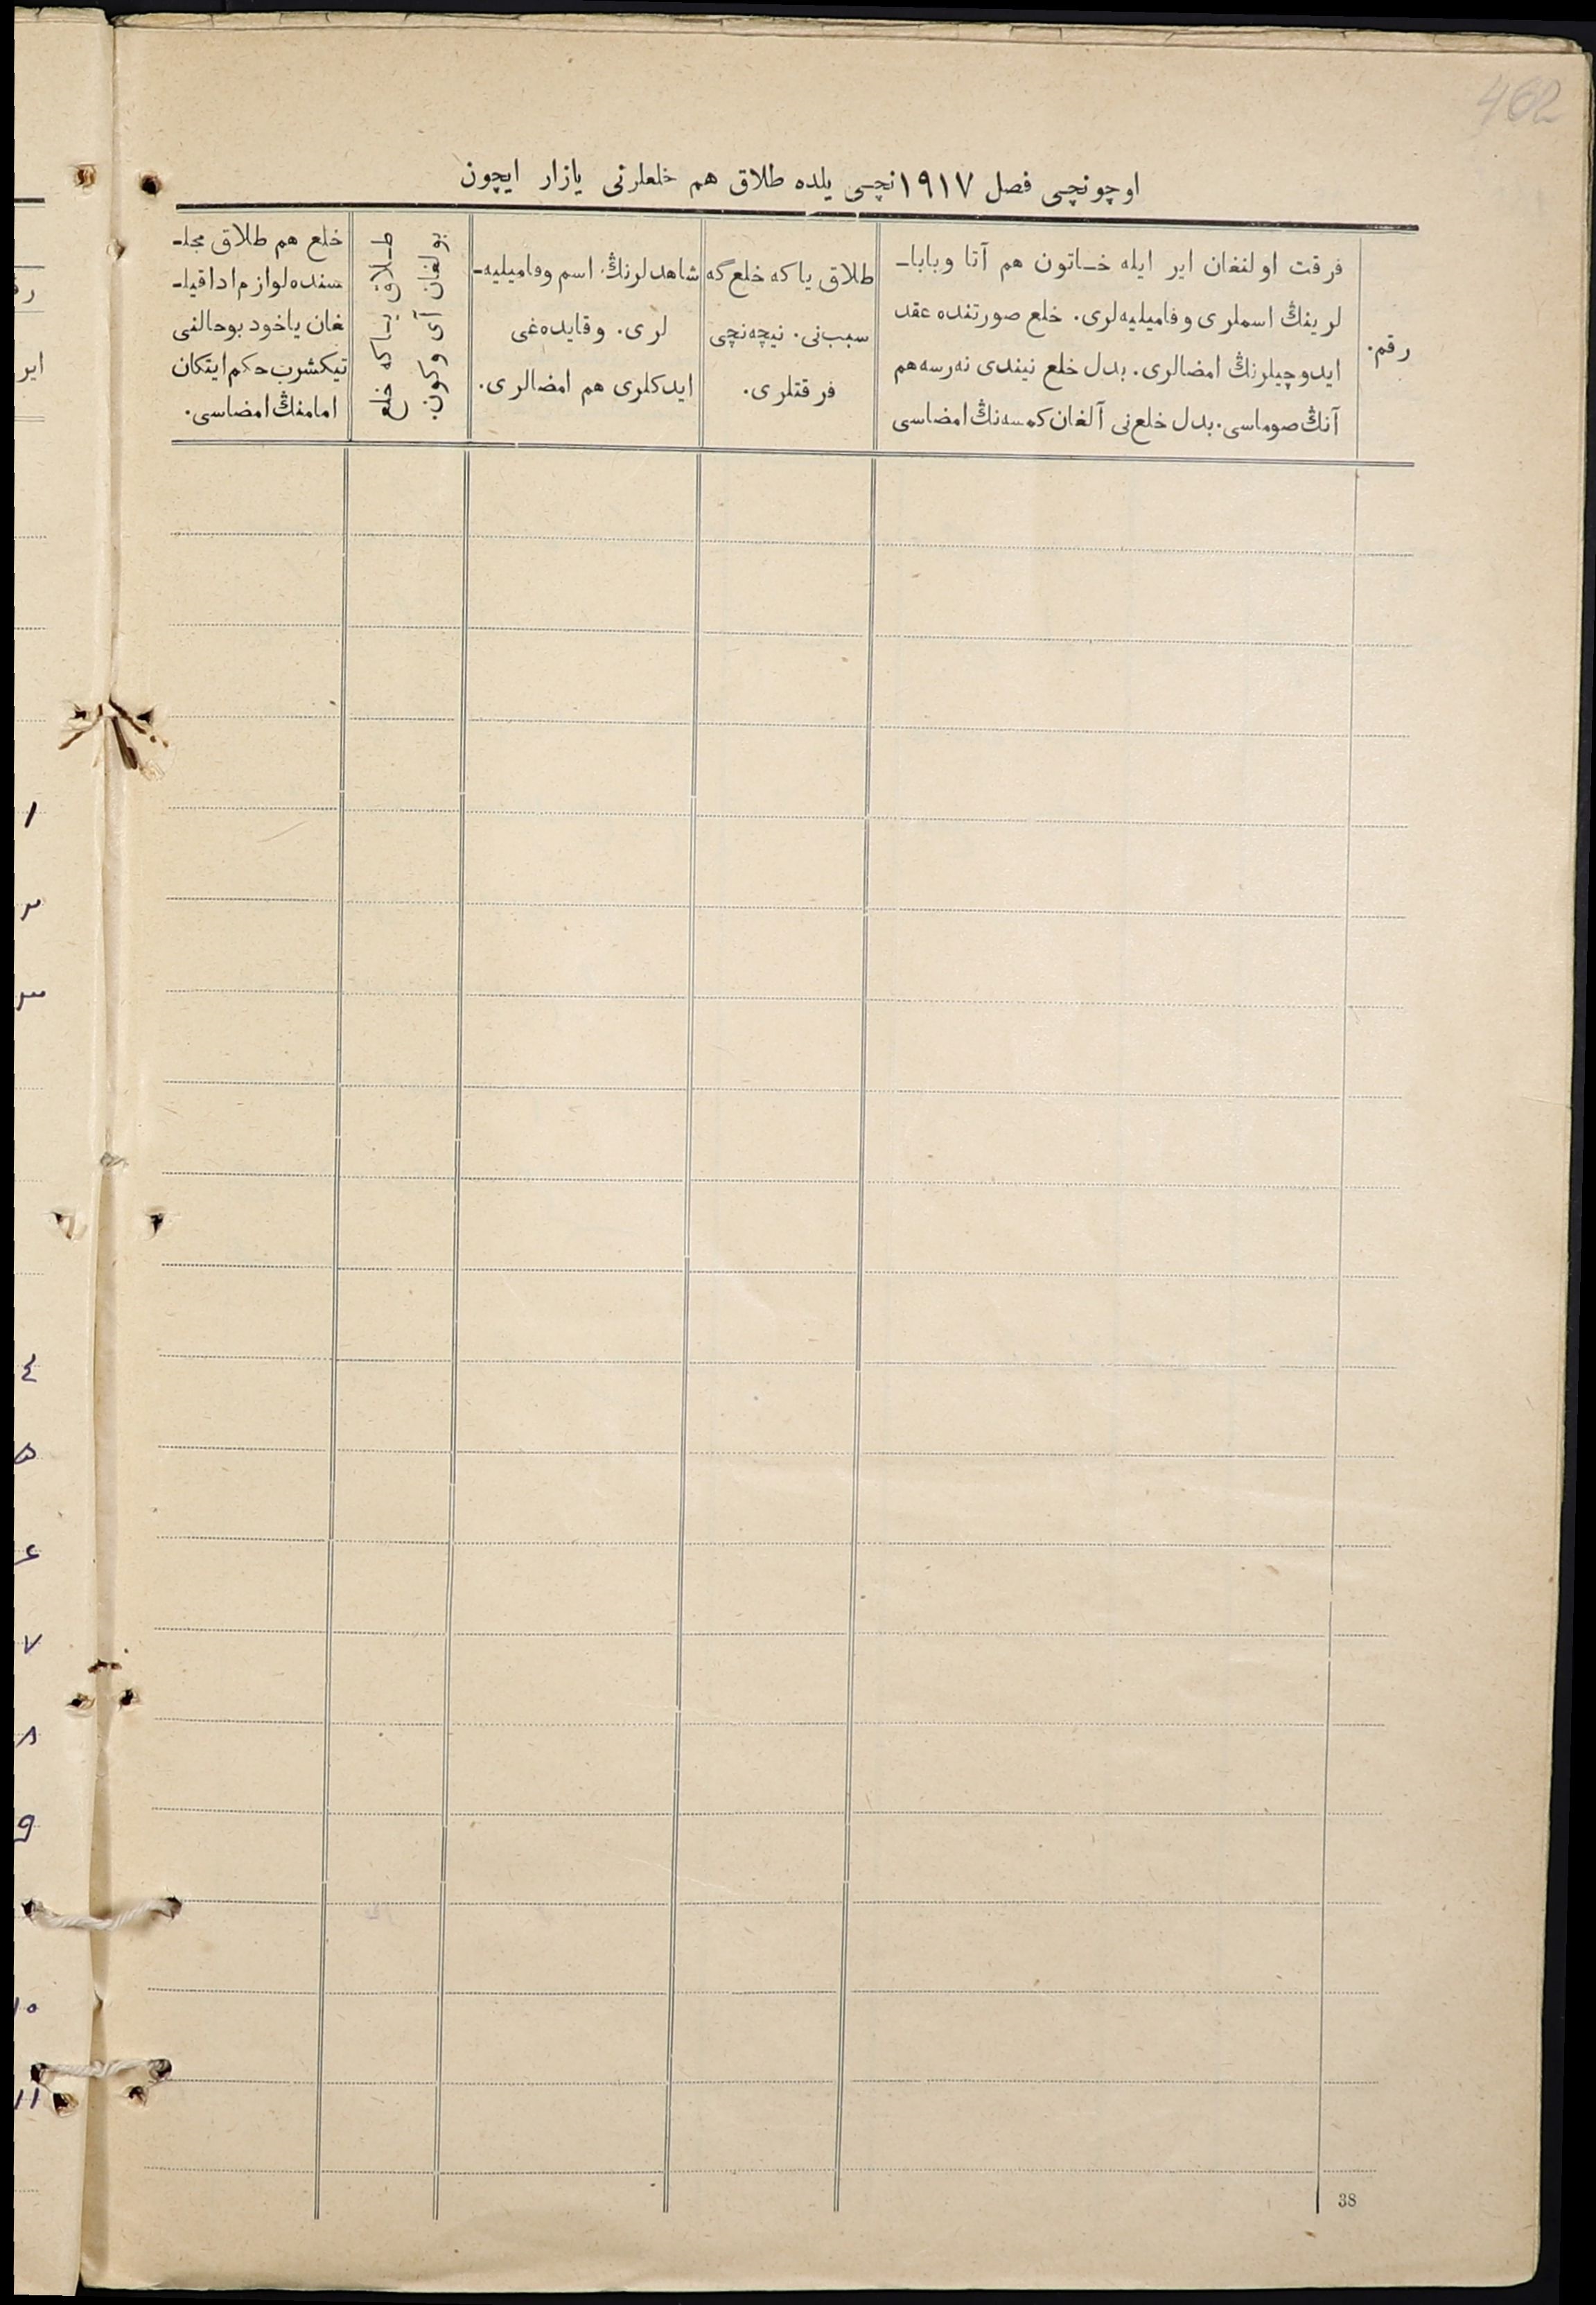 462
اوچونچی فصل ۱۹۱۷نچی یلده طلاق هم خلعلرنی یازار ایچون
رقم.
فرقت اولنغان ایر ایله خاتون هم آتا وبابا-
لرینڭ اسملری وفامیلیه‌لری. خلع صورتنده عقد
ایدوچیلرنڭ امضالری. بدل خلع نیندی نه‌رسه‌هم
آنڭ صوماسی. بدل خلع‌نی آلغان کمسه‌نڭ امضاسی
طلاق یا که خلع گه
سبب‌نی. نیچه‌نچی
فرقتلری.
شاهدلرنڭ اسم وفامیلیه-
لری. وقایده‌غی
ایدکلری هم امضالری.
طلاق یاکه خلع
بولغان آی وکون.
خلع هم طلاق مجلـ-
سنده‌لوازم‌اداقیلـ-
غان یاخود بوحالنی
تیکشرب‌حکم‌ایتکان
امامنڭ‌امضاسی.
ایر
۱
۲
۳
٤
۵
۶
۷
۸
۹
۱۰
۱۱
38